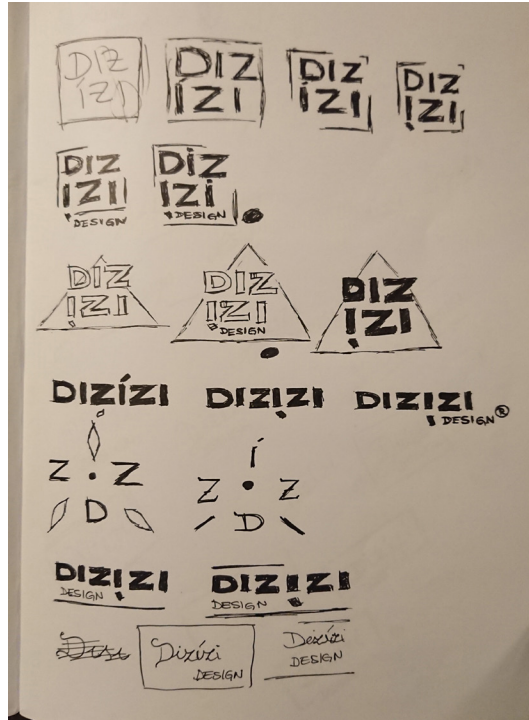 DIZ
ÍZI
DIZ
ÍZI
DIZ
ÍZI
DIZ
IZI
DIZ
IZI
DESIGN
DİZ
IZİ
DESIGN
DÍZ
IZI
DIZ
IZI
DESIGN
DIZ
IZI
DIZÍZI
DIZIZI
DIZIZI
DESIGN ®
Z Z
D
Í
Z Z
D
DIZIZI
DESIGN
DIZIZI
DESIGN
Dizízi
DESIGN
DESIGN